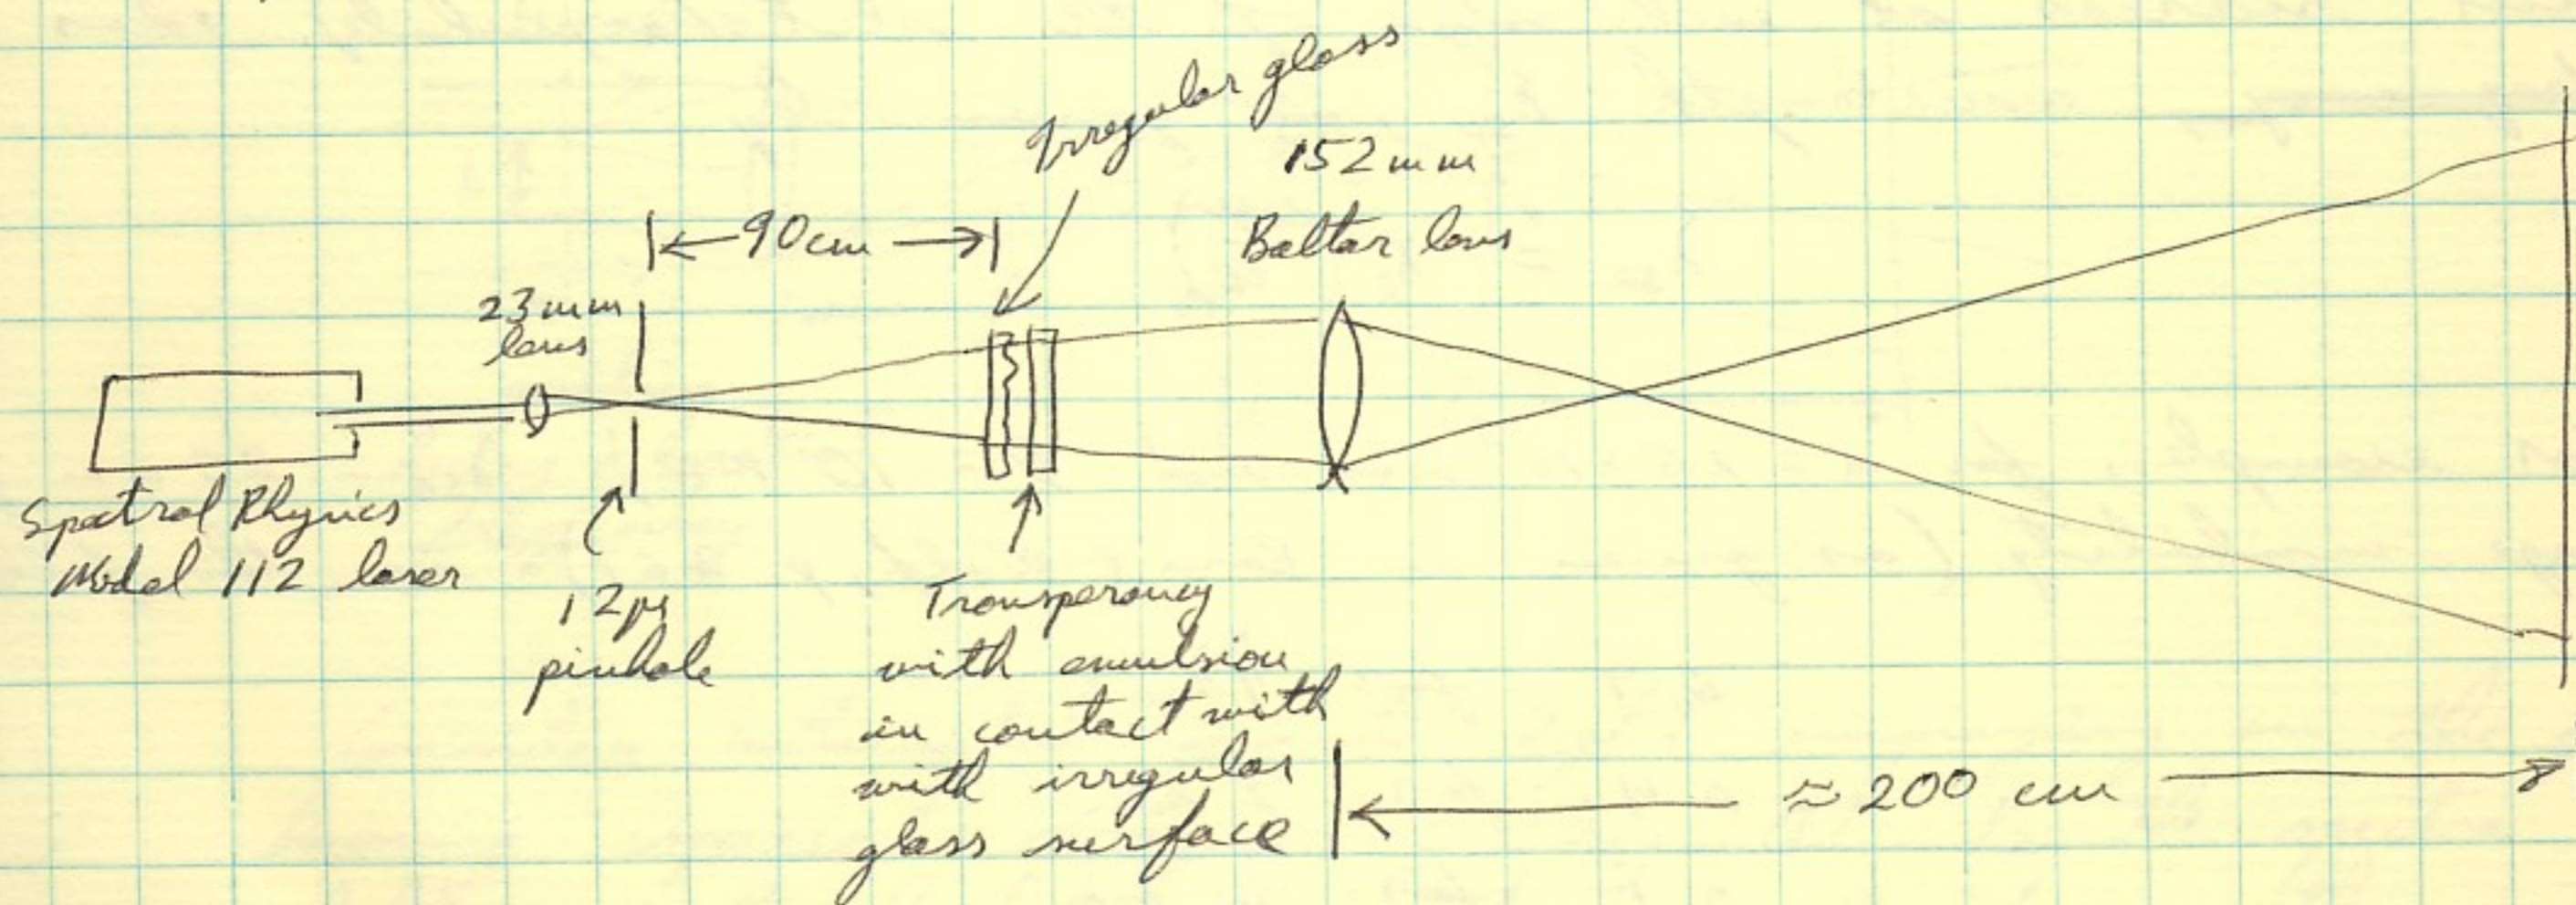 Irregular glass
152 mm
Baltar lens
90 cm
23 mm
lens
Spectral Physics
Model 112 laser
12μ
pinhole
Transparency
with emulsion
in contact with
with irregular
glass surface
≈ 200 cm